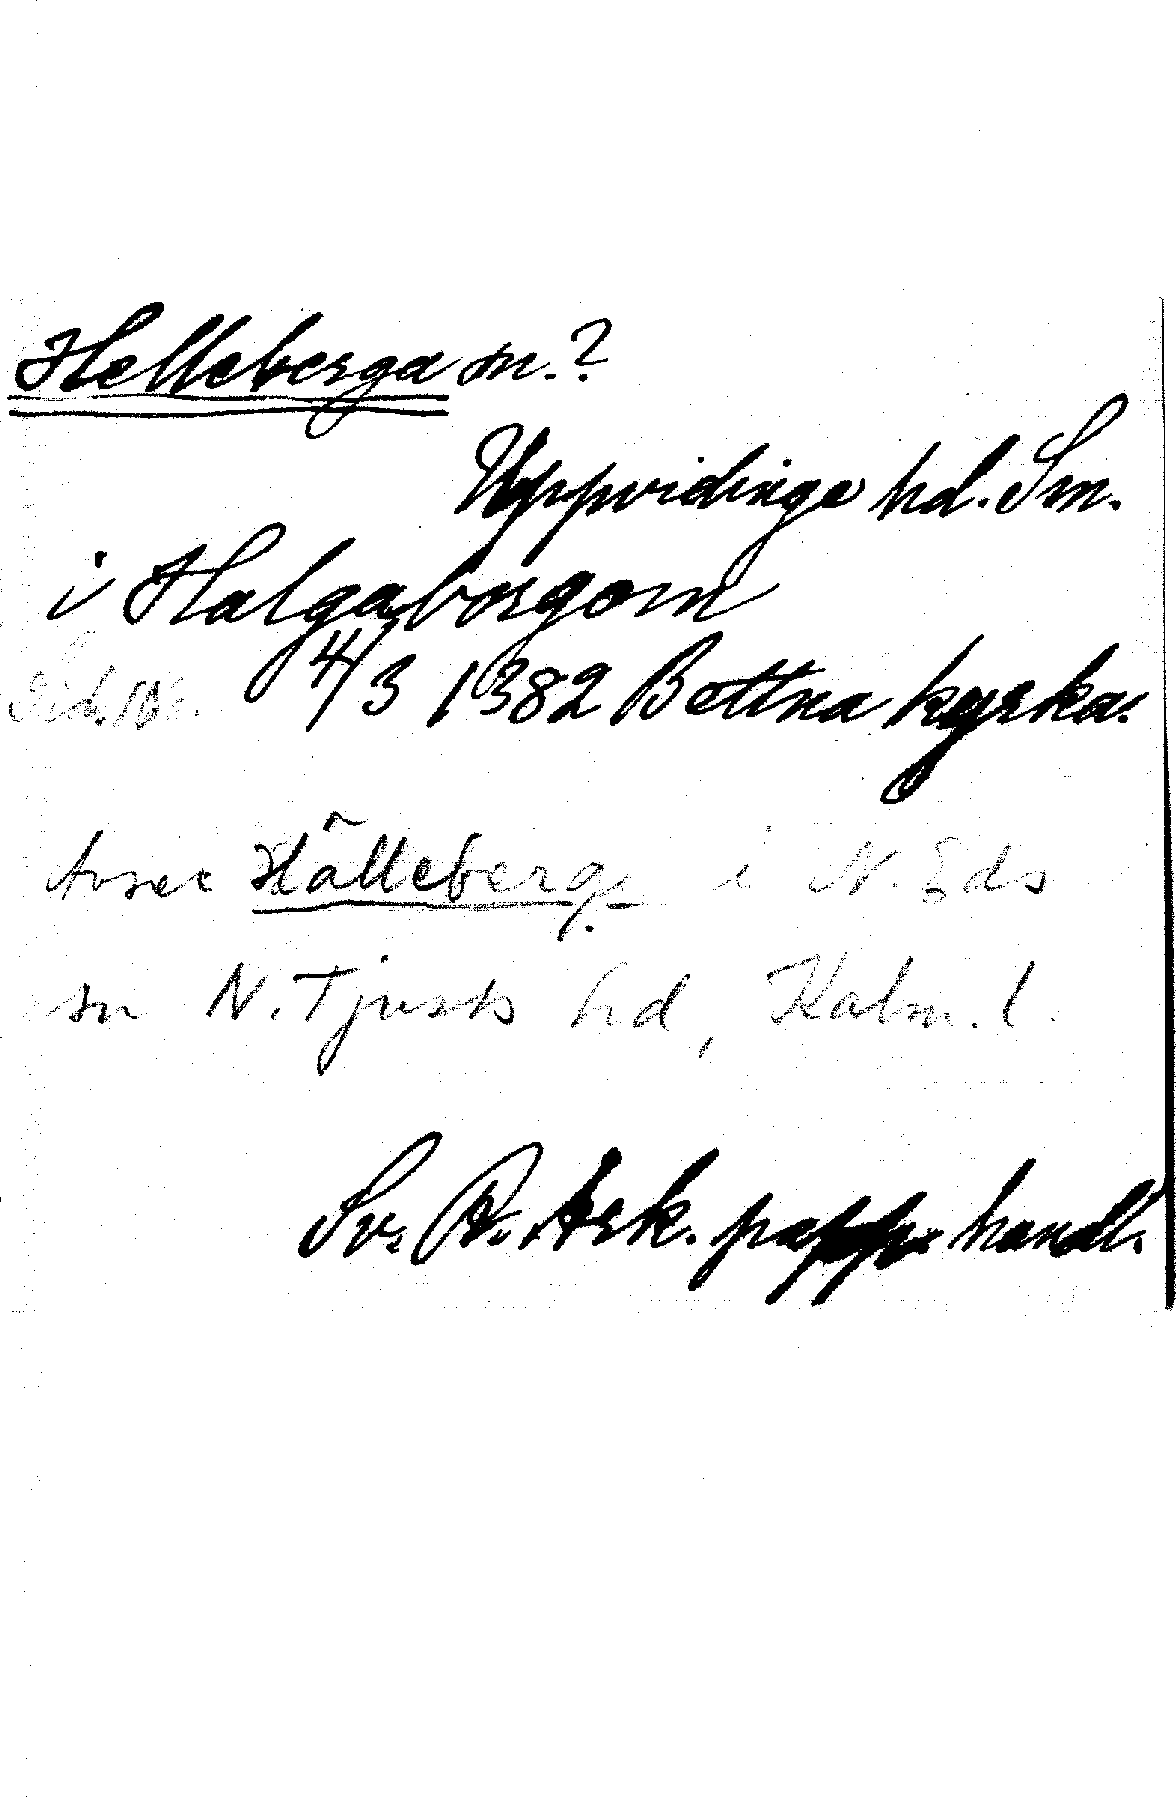 Helleberga sn.?
Uppvidinge hd. Sm.
i Halgaborgom
4/3 1382 Bettna kyrka.
Avser Hälleberg i N. Eds
sn N. Tjusts hd, Kalm. l.
Sv. R. Ark. papp. handl.